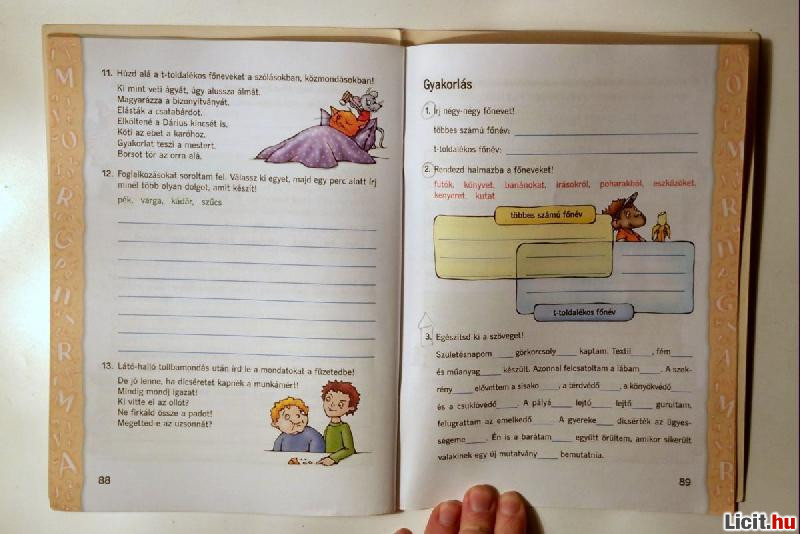 11. Húzd alá a t-toldalékos főneveket a szólásokban, közmondásokban!
Ki mint veti ágyát, úgy alussza álmát.
Magyarázza a bizonyítványát.
Elásták a csatabárdot.
Elköltené a Dárius kincsét is.
Köti az ebet a karóhoz.
Gyakorlat teszi a mestert.
Borsot tör az orra alá.
12. Foglalkozásokat soroltam fel. Válassz ki egyet, majd egy perc alatt írj
minél több olyan dolgot, amit készít!
pék, varga, kádár, szűcs
13. Látó-halló tollbamondás után írd le a mondatokat a füzetedbe!
De jó lenne, ha dicséretet kapnék a munkámért!
Mindig mondj igazat!
Ki vitte el az ollót?
Ne firkáld össze a padot!
Megetted-e az uzsonnát?
88
Gyakorlás
1. Írj négy-négy főnevet!
többes számú főnév:
t-toldalékos főnév:
2. Rendezd halmazba a főneveket!
futók, könyvet, banánokat, írásokról, poharakból, eszközöket,
kenyeret, kutat
többes számú főnév
t-toldalékos főnév
3. Egészítsd ki a szöveget!
Születésnapom____ görkorcsoly____ kaptam. Textil____, fém____
és műanyag____ készült. Azonnal felcsatoltam a lábam____. A szek-
rény____ elővettem a sisako____, a térdvédő____, a könyökvédő____
és a csuklóvédő____. A pályá____ lejtő____ lejtő____ gurultam,
felugrattam az emelkedő____. A gyereke____ dicsérték az ügyes-
ségeme____. Én is a barátam____ együtt örültem, amikor sikerült
valakinek egy új mutatvány____ bemutatnia.
89
Licit.hu